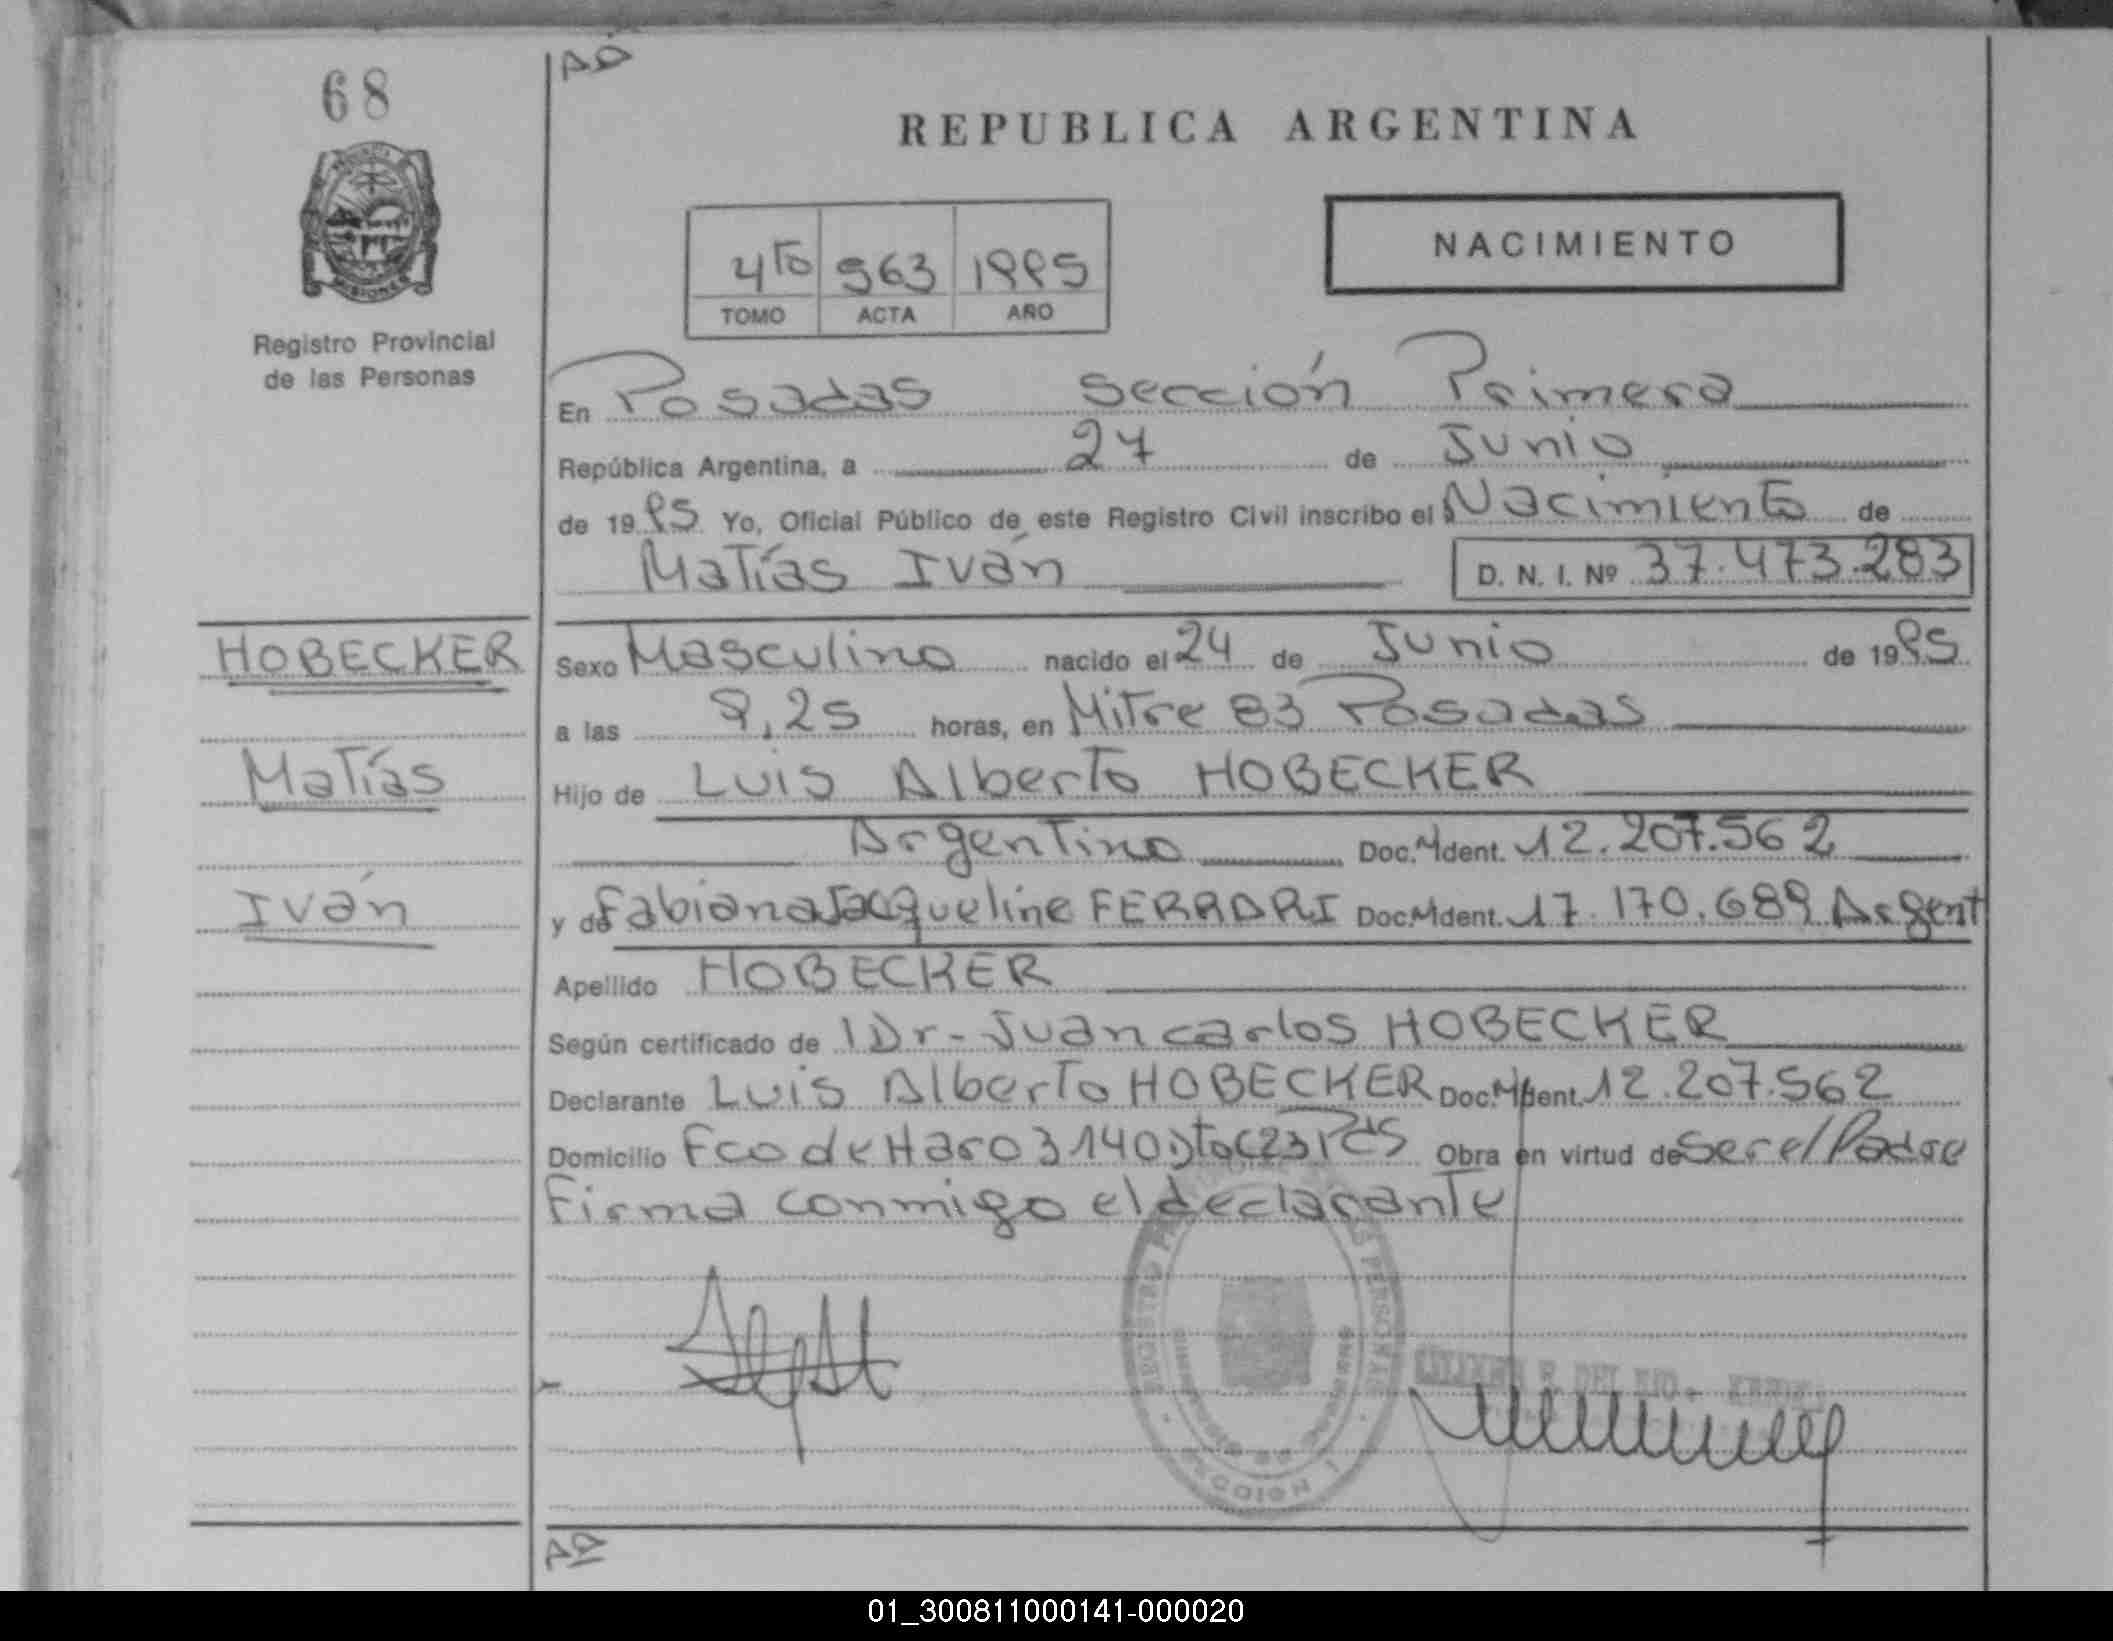 68
REPUBLICA ARGENTINA
NACIMIENTO
4to 963 1995
TOMO ACTA AÑO
MISIONES
Registro Provincial
de las Personas
En Posadas Sección Primera
República Argentina, a 27 de Junio
de 1995 Yo, Oficial Público de este Registro Civil inscribo el Nacimiento de
Matías Iván D. N. I. Nº 37.473.283
HOBECKER
Matías
Iván
Sexo Masculino nacido el 24 de Junio de 1995
a las 9,25 horas, en Mitre 83 Posadas
Hijo de Luis Alberto HOBECKER
Argentino Doc. Ident. 12.207.562
y de Fabiana Jacqueline FERRARI Doc. Ident. 17.170.689 Argent
Apellido HOBECKER
Según certificado de l Dr- Juan carlos HOBECKER
Declarante Luis Alberto HOBECKER Doc. Ident. 12.207.562
Domicilio Fco de Haro 3140 Dto C23 Pds Obra en virtud de Ser el Padre
Firma conmigo el declarante
SECCION 1
01_300811000141-000020